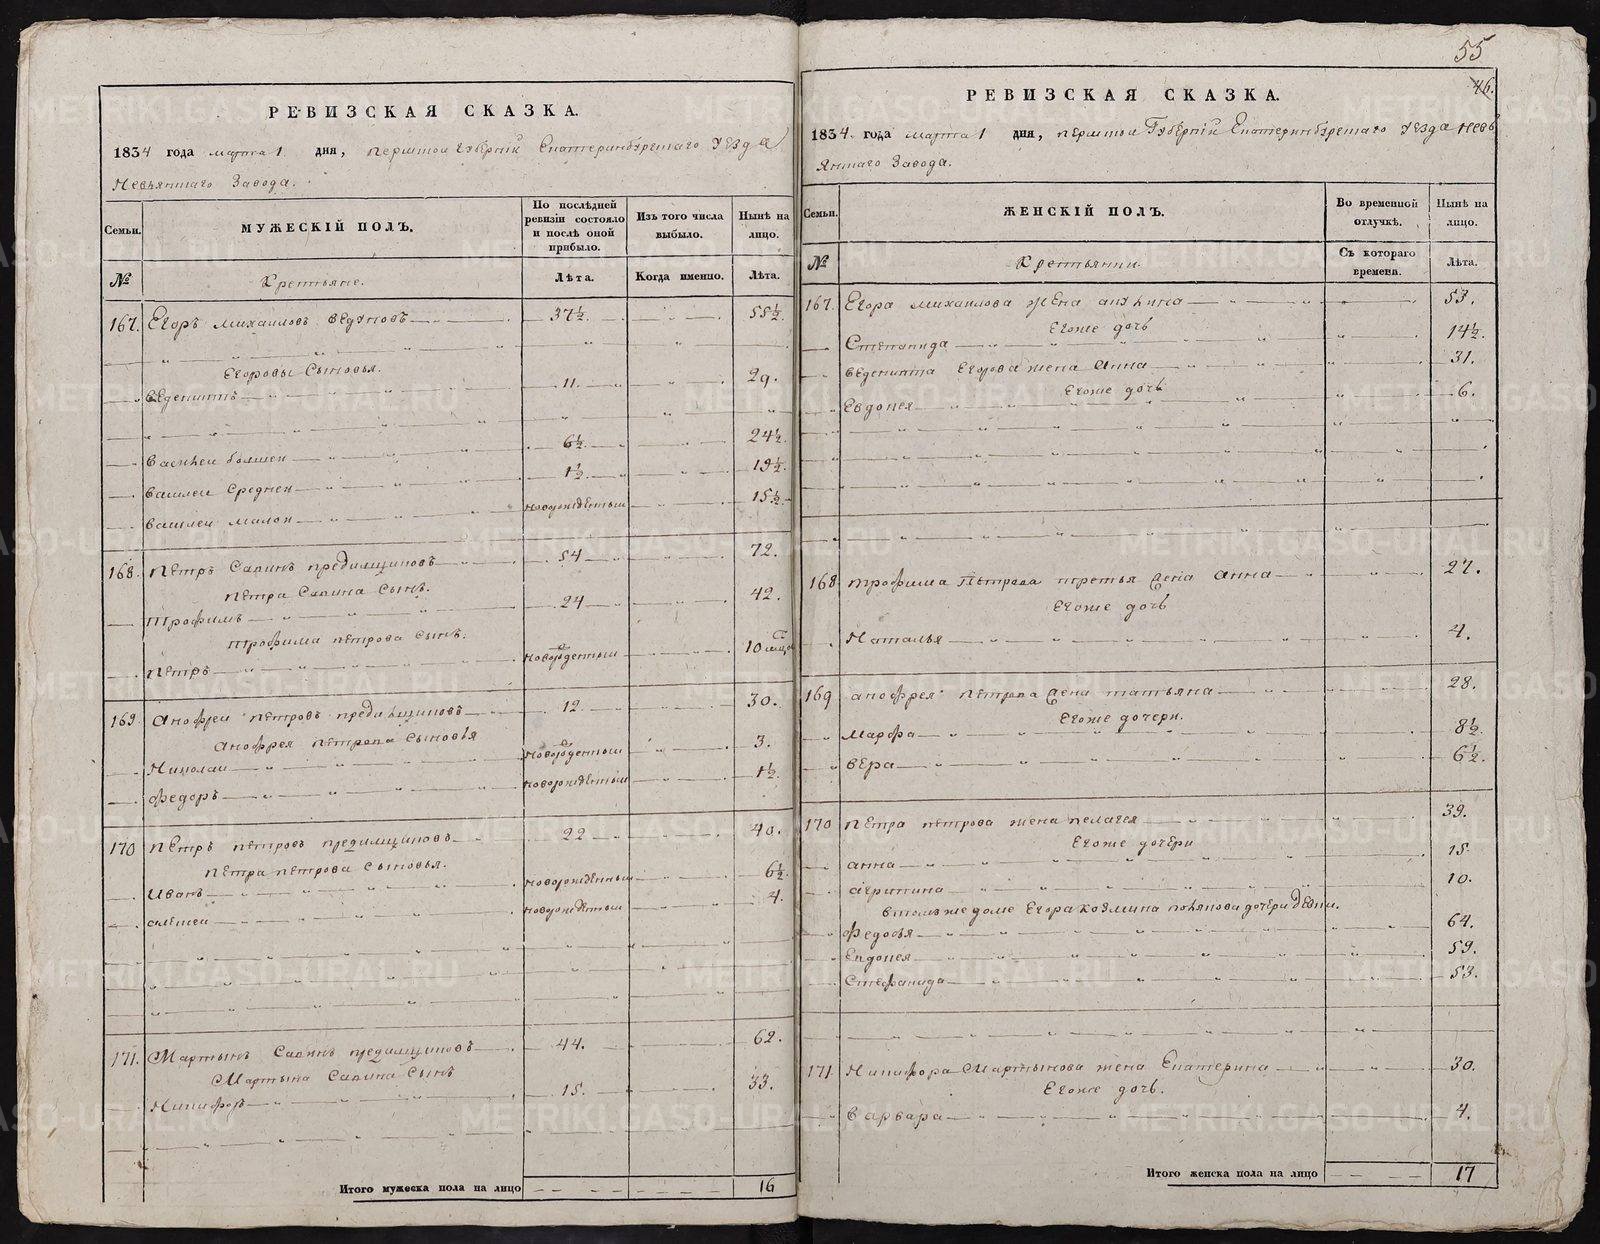 55
РЕВИЗСКАЯ СКАЗКА.
1834 года марта 1 дня, пермской губернiи Екатеринбургскаго уезда
Невьянскаго Завода.
Семьи.
МУЖЕСКIЙ ПОЛЪ.
По послѣдней ревизiи состояло и послѣ оной прибыло.
Изъ того числа выбыло.
Нынѣ на лицо.
№
Крестьяне.
Лѣта.
Когда именно.
Лѣта.
167. Егоръ михаиловъ 37½ 55½.
Егоровы Сыновья.
ведениктъ 11. 29.
василеи болшеи 6½ 24½
василеи среднеи 1½ 19½
василеи малои новорожденныи 15½
168. Петръ Савинъ 54 72.
Петра Савина Сынъ.
трофимъ 24 42.
трофима петрова Сынъ.
петръ новорожденныи 10
169. Анофреи петровъ 12. 30.
Анофрея петрова Сыновья
Николаи новорожденныи 3.
федоръ новорожденныи 1½
170 петръ петровъ 22 40.
петра петрова Сыновья.
Иванъ новорожденныи 6½
алексеи новорожденныи 4.
171. Мартынъ Савинъ 44. 62.
Мартына Савина Сынъ
Никифоръ 15. 33.
Итого мужеска пола на лицо 16
46.
РЕВИЗСКАЯ СКАЗКА.
1834. года марта 1 дня, пермской Губернiи Екатеринбургскаго уезда Невь
янскаго Завода.
Семьи.
ЖЕНСКIЙ ПОЛЪ.
Во временной отлучкѣ.
Нынѣ на лицо.
№
Крестьянки.
Съ котораго времени.
Лѣта.
167. Егора михаилова жена акулина 53.
Егоже дочь
Степанида 14½.
веденикта Егорова жена Анна 31.
Егоже дочь
Евдокея 6.
168 трофима Петрова третья жена Анна 27.
Егоже дочь
Наталья 4.
169 анофрея петрова жена татьяна 28.
Егоже дочери.
Марфа 8½
вера 6½.
170 петра петрова жена пелагея 39.
Егоже дочери
анна 15
агрипина 10.
втомже доме Егора козмина дочери девки.
федосья 64.
Евдокея 59.
Стефанида 53.
171 Никифора Мартынова жена Екатерина 30.
Егоже дочь.
варвара 4.
Итого женска пола на лицо 17
METRIKI.GASO-URAL.RU